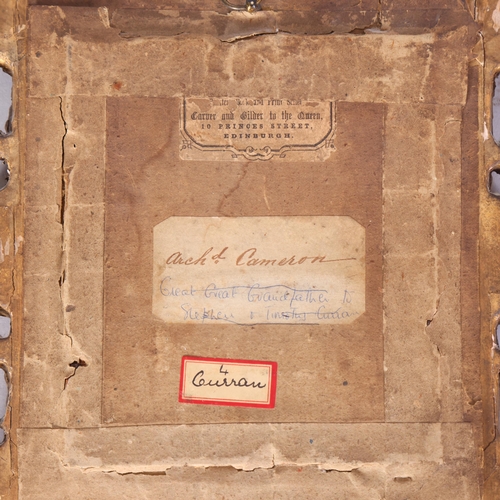 Carver and Gilder to the Queen,
10 PRINCES STREET,
EDINBURGH.
Archd. Cameron
Great Great Grandfather to
Stephen & Timothy Curran
4
Curran